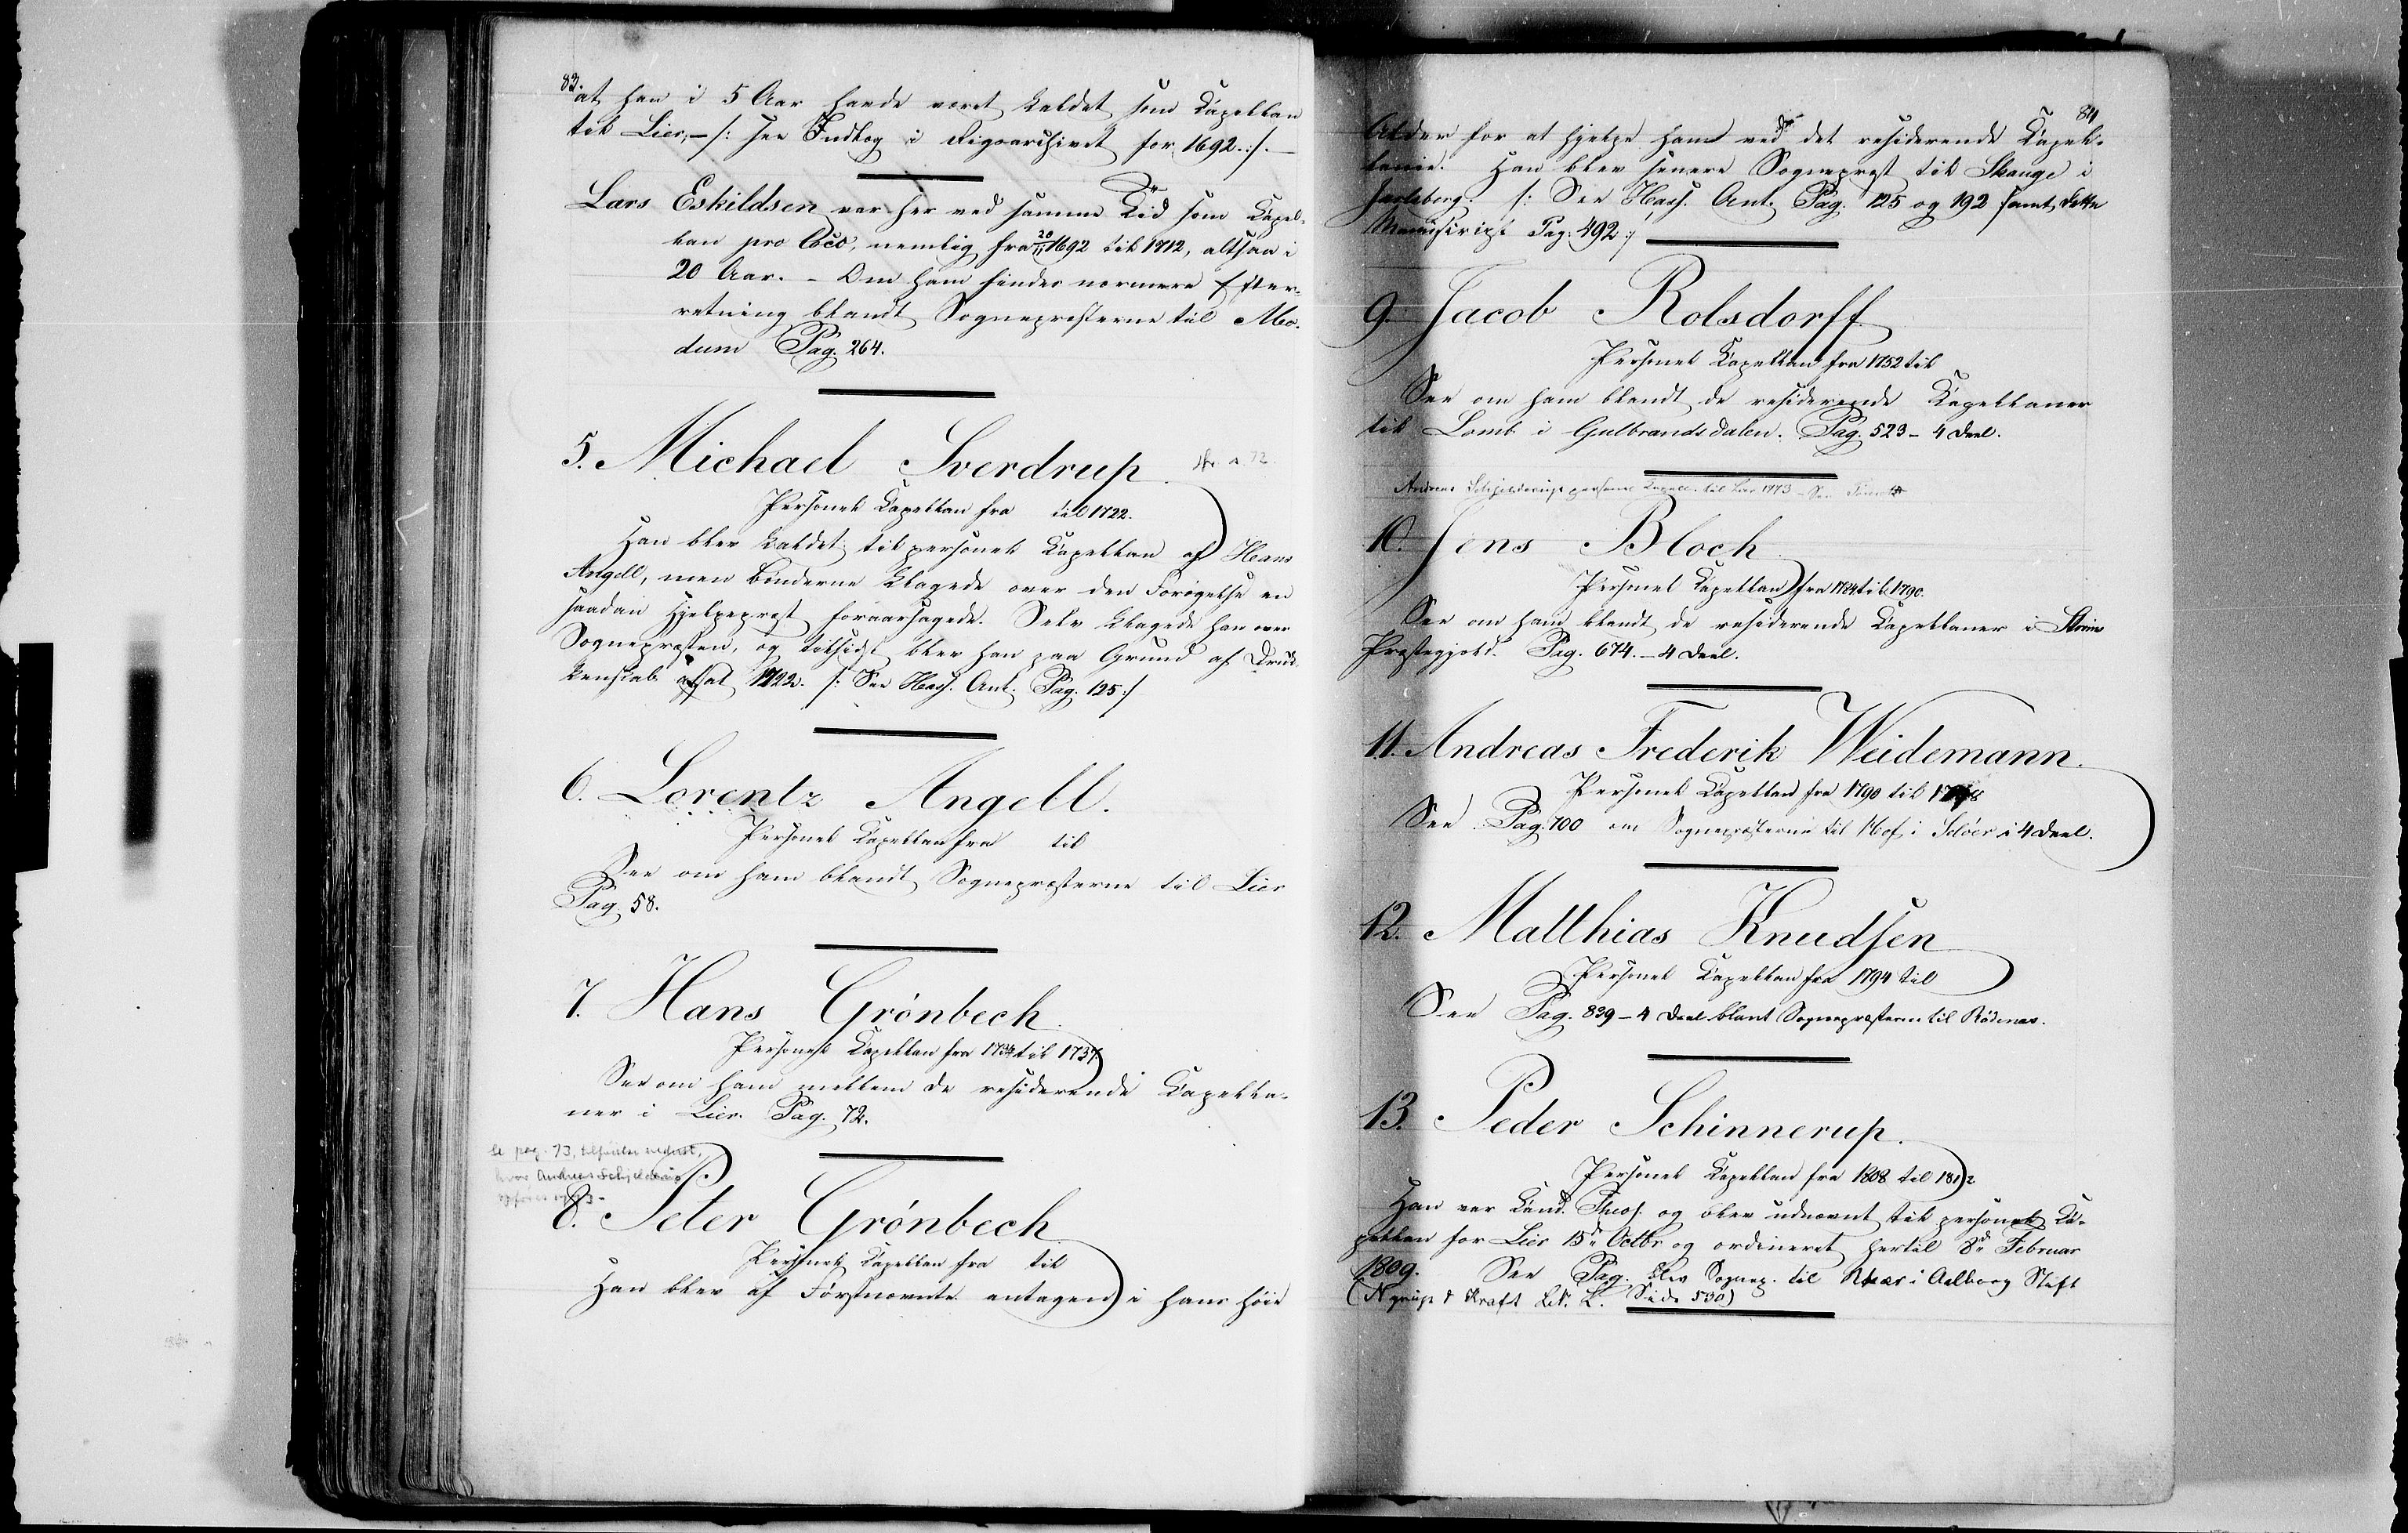 83.
at han i 5 Aar havde været kaldet som Capellan
til Lier, – /: see Indlæg i Rigsarchivet for 1692. :/. –
Lars Eskildsen var her ved samme Tid som Capel-
lan pro loco, nemlig fra 20/11 1692 til 1712, altsaa i
20 Aar. – Om ham findes nærmere Efter-
retning blandt Sognepræsterne til Mo-
dum Pag. 264.
5. Michael Sverdrup.
Personel Capellan fra til 1722.
Han blev kaldet til personel Capellan af Hans
Angell, men Bønderne klagede over den Forøgelse en
saadan Hjelpepræst foraarsagede. Selv klagede han over
Sognepræsten, og tilsidst blev han paa Grund af Druk-
kenskab afsat 1722. /: See Hass. Ant. Pag. 125 :/
6. Lorentz Angell.
Personel Capellan fra til
See om ham blandt Sognepræsterne til Lier
Pag. 58.
7. Hans Grønbech.
Personel Capellan fra 1734 til 1737.
See om ham mellem de residerende Capella-
ner i Lier. Pag. 72.
se pag. 73, tilføielse nederst,
hvor Andreas Schjelderup
opføres
8. Peter Grønbech
Personel Capellan fra til
Han blev af Førstnævnte antagen i hans høie
84
Alder for at hjelpe ham ved det residerende Capel-
lanie. Han blev senere Sognepræst til Skauge i
Jarlsberg. /: See Hass. Ant. Pag. 125 og 192 samt dette
Manuscript Pag. 492 :/
9. Jacob Rolsdorff
Personel Capellan fra 1752 til
See om ham blandt de residerende Capellaner
til Lomb i Gulbrandsdalen. Pag. 523 – 4 Deel.
Andreas Schjelderup personel Capell. til Lier 1773 – See
10. Jens Bloch
Personel Capellan fra 1784 til 1790.
See om ham blandt de residerende Capellaner i
Præstegjeld. Pag. 674. – 4 Deel.
11. Andreas Frederik Weidemann.
Personel Capellan fra 1790 til
See Pag. 700 om Sognepræsterne til Hof i Soløer i 4 Deel.
12. Matthias Knudsen
Personel Capellan fra 1794 til
See Pag. 839 – 4 Deel blant Sognepræsterne til Rödenes.
13. Peder Schinnerup.
Personel Capellan fra 1808 til 1812
Han var Cand. Theol. og blev udnævnt til personel Ca-
pellan for Lier 15de Octbr og ordineret hertil 8de Februar
1809. See Pag. blev Sognep. til i Aalborg Stift
(Nyerup & Kraft Lit. L. Side 530)